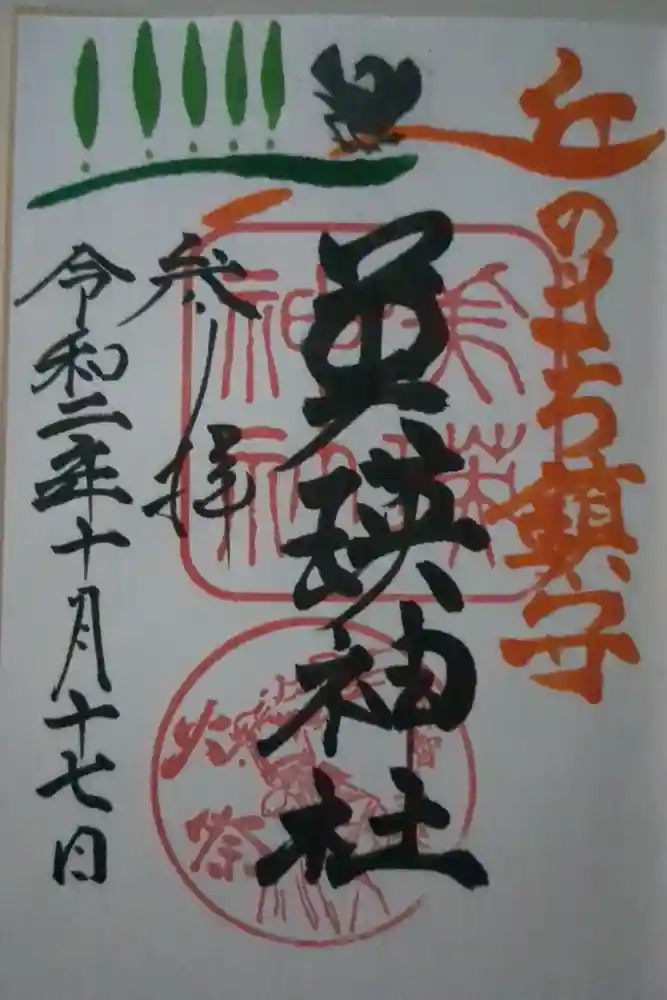 丘のまち鎮守
美瑛神社
美瑛
神社
火祭
参拝
令和二年十月十七日